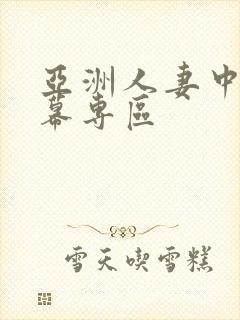 亞洲人妻中
幕專區
雪天喫雪糕